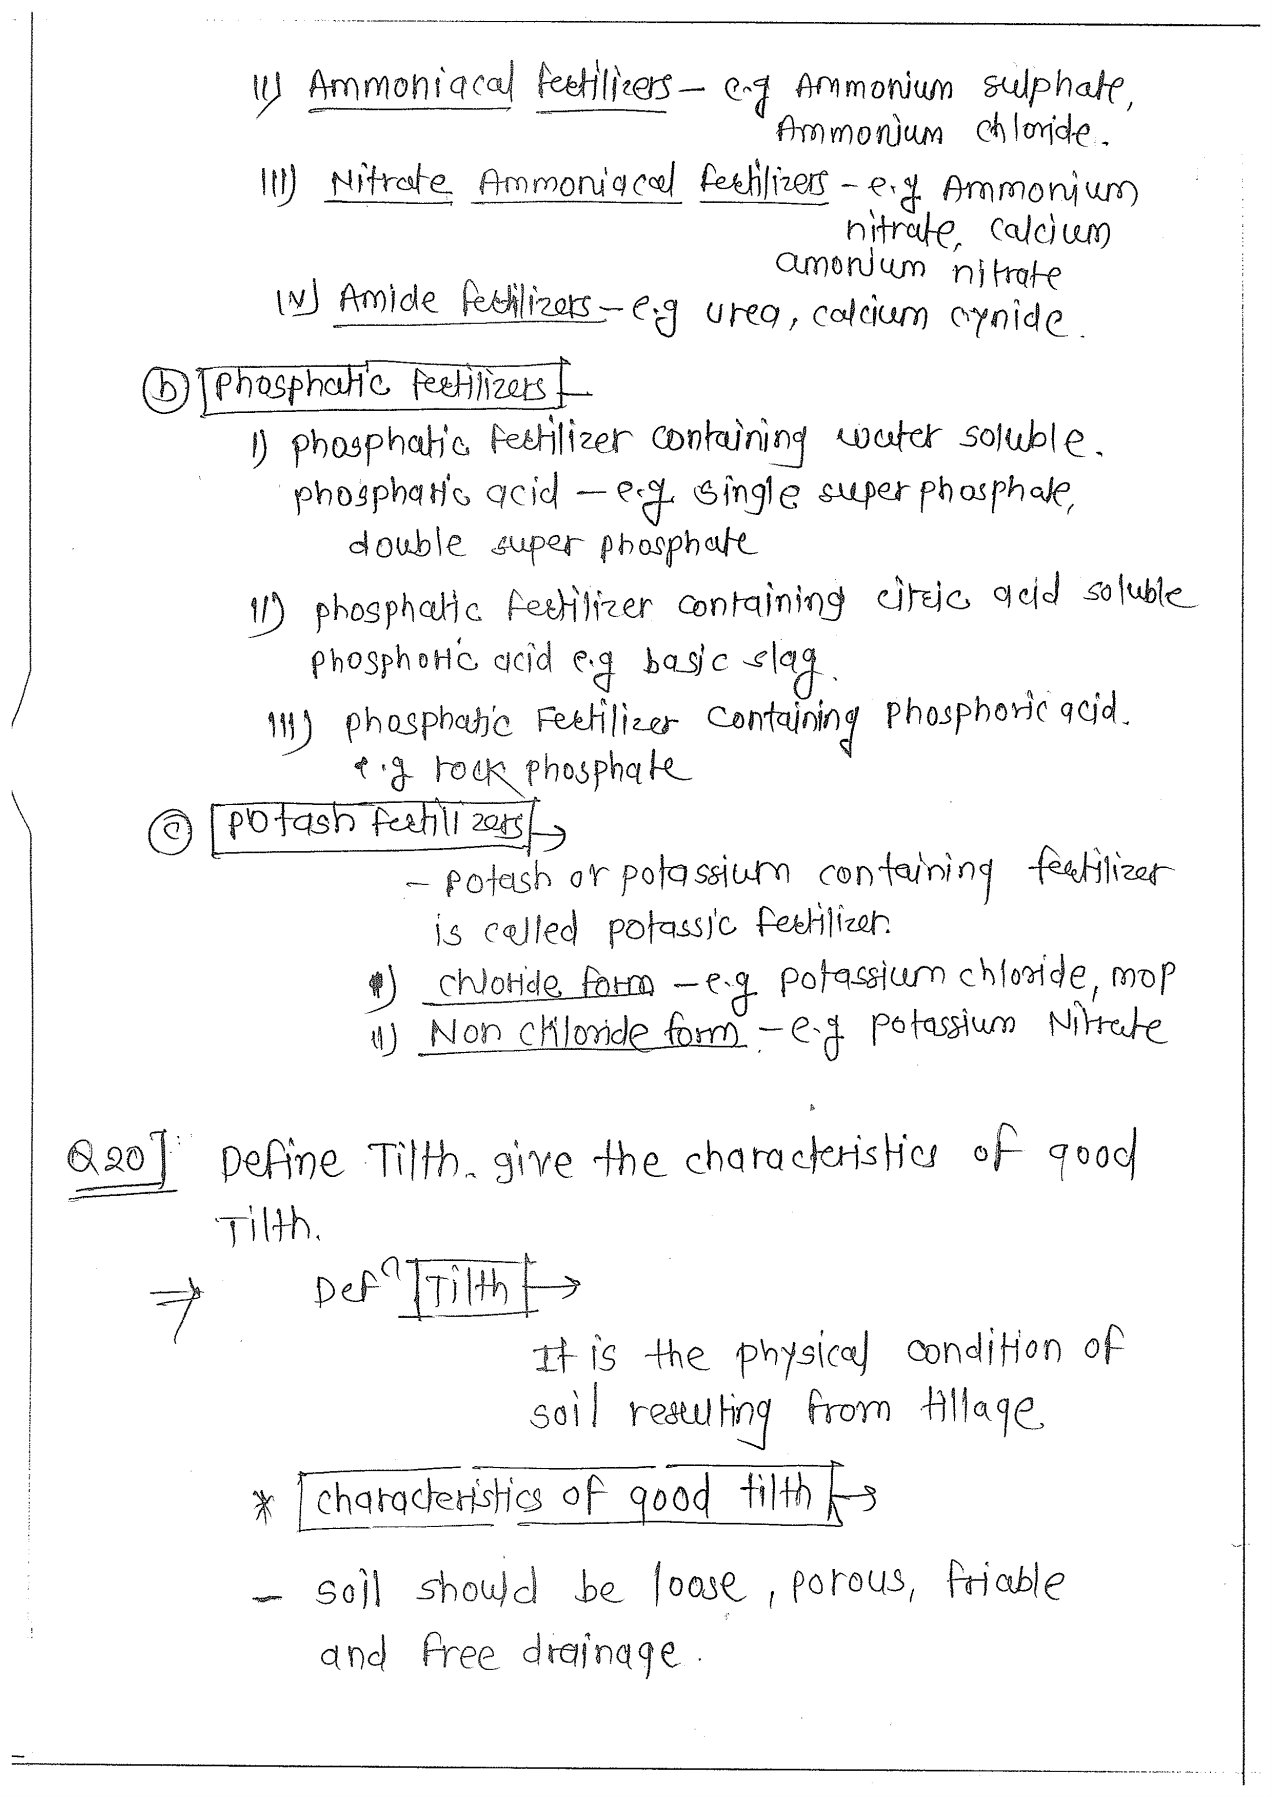 ii) Ammoniacal fertilizers - e.g Ammonium sulphate,
Ammonium chloride.
iii) Nitrate Ammoniacal fertilizers - e.g Ammonium
nitrate, calcium
amonium nitrate
iv) Amide fertilizers - e.g urea, calcium cynide.
(b) Phosphatic fertilizers -
i) phosphatic fertilizer containing water soluble.
phosphatic acid - e.g. single super phosphate,
double super phosphate
ii) phosphatic fertilizer containing citric acid soluble
phosphoric acid e.g basic slag.
iii) phosphatic Fertilizer containing phosphoric acid.
e.g rock phosphate
(c) Potash fertilizers →
- potash or potassium containing fertilizer
is called potassic fertilizer.
i) chloride form - e.g potassium chloride, mop
ii) Non Chloride form - e.g potassium Nitrate
Q20] Define Tilth. give the characteristics of good
Tilth.
⇒ Defn Tilth →
It is the physical condition of
soil resulting from tillage
* characteristics of good tilth →
- soil should be loose, porous, friable
and free drainage.